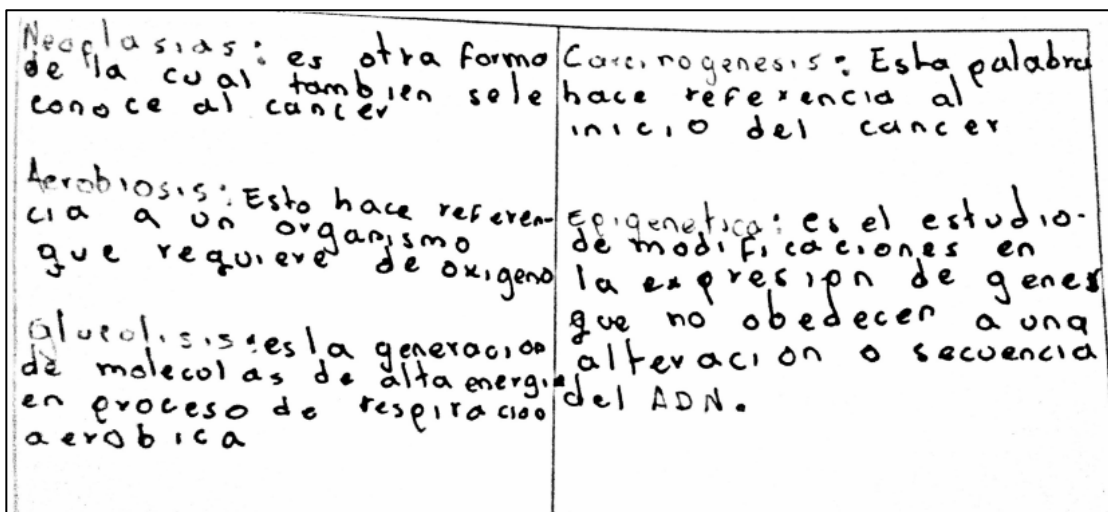 Neoplasias: es otra forma
de la cual tambien sele
conoce al cancer
Aerobiosis: Esto hace referen-
cia a un organismo
que requiere de oxigeno
Glucolisis: es la generacion
de molecolas de alta energia
en proceso de respiracion
aerobica
Carcinogenesis: Esta palabra
hace referencia al
inicio del cancer
Epigenetica: es el estudio-
de modificaciones en
la expresion de genes
que no obedecen a una
alteracion o secuencia
del ADN.